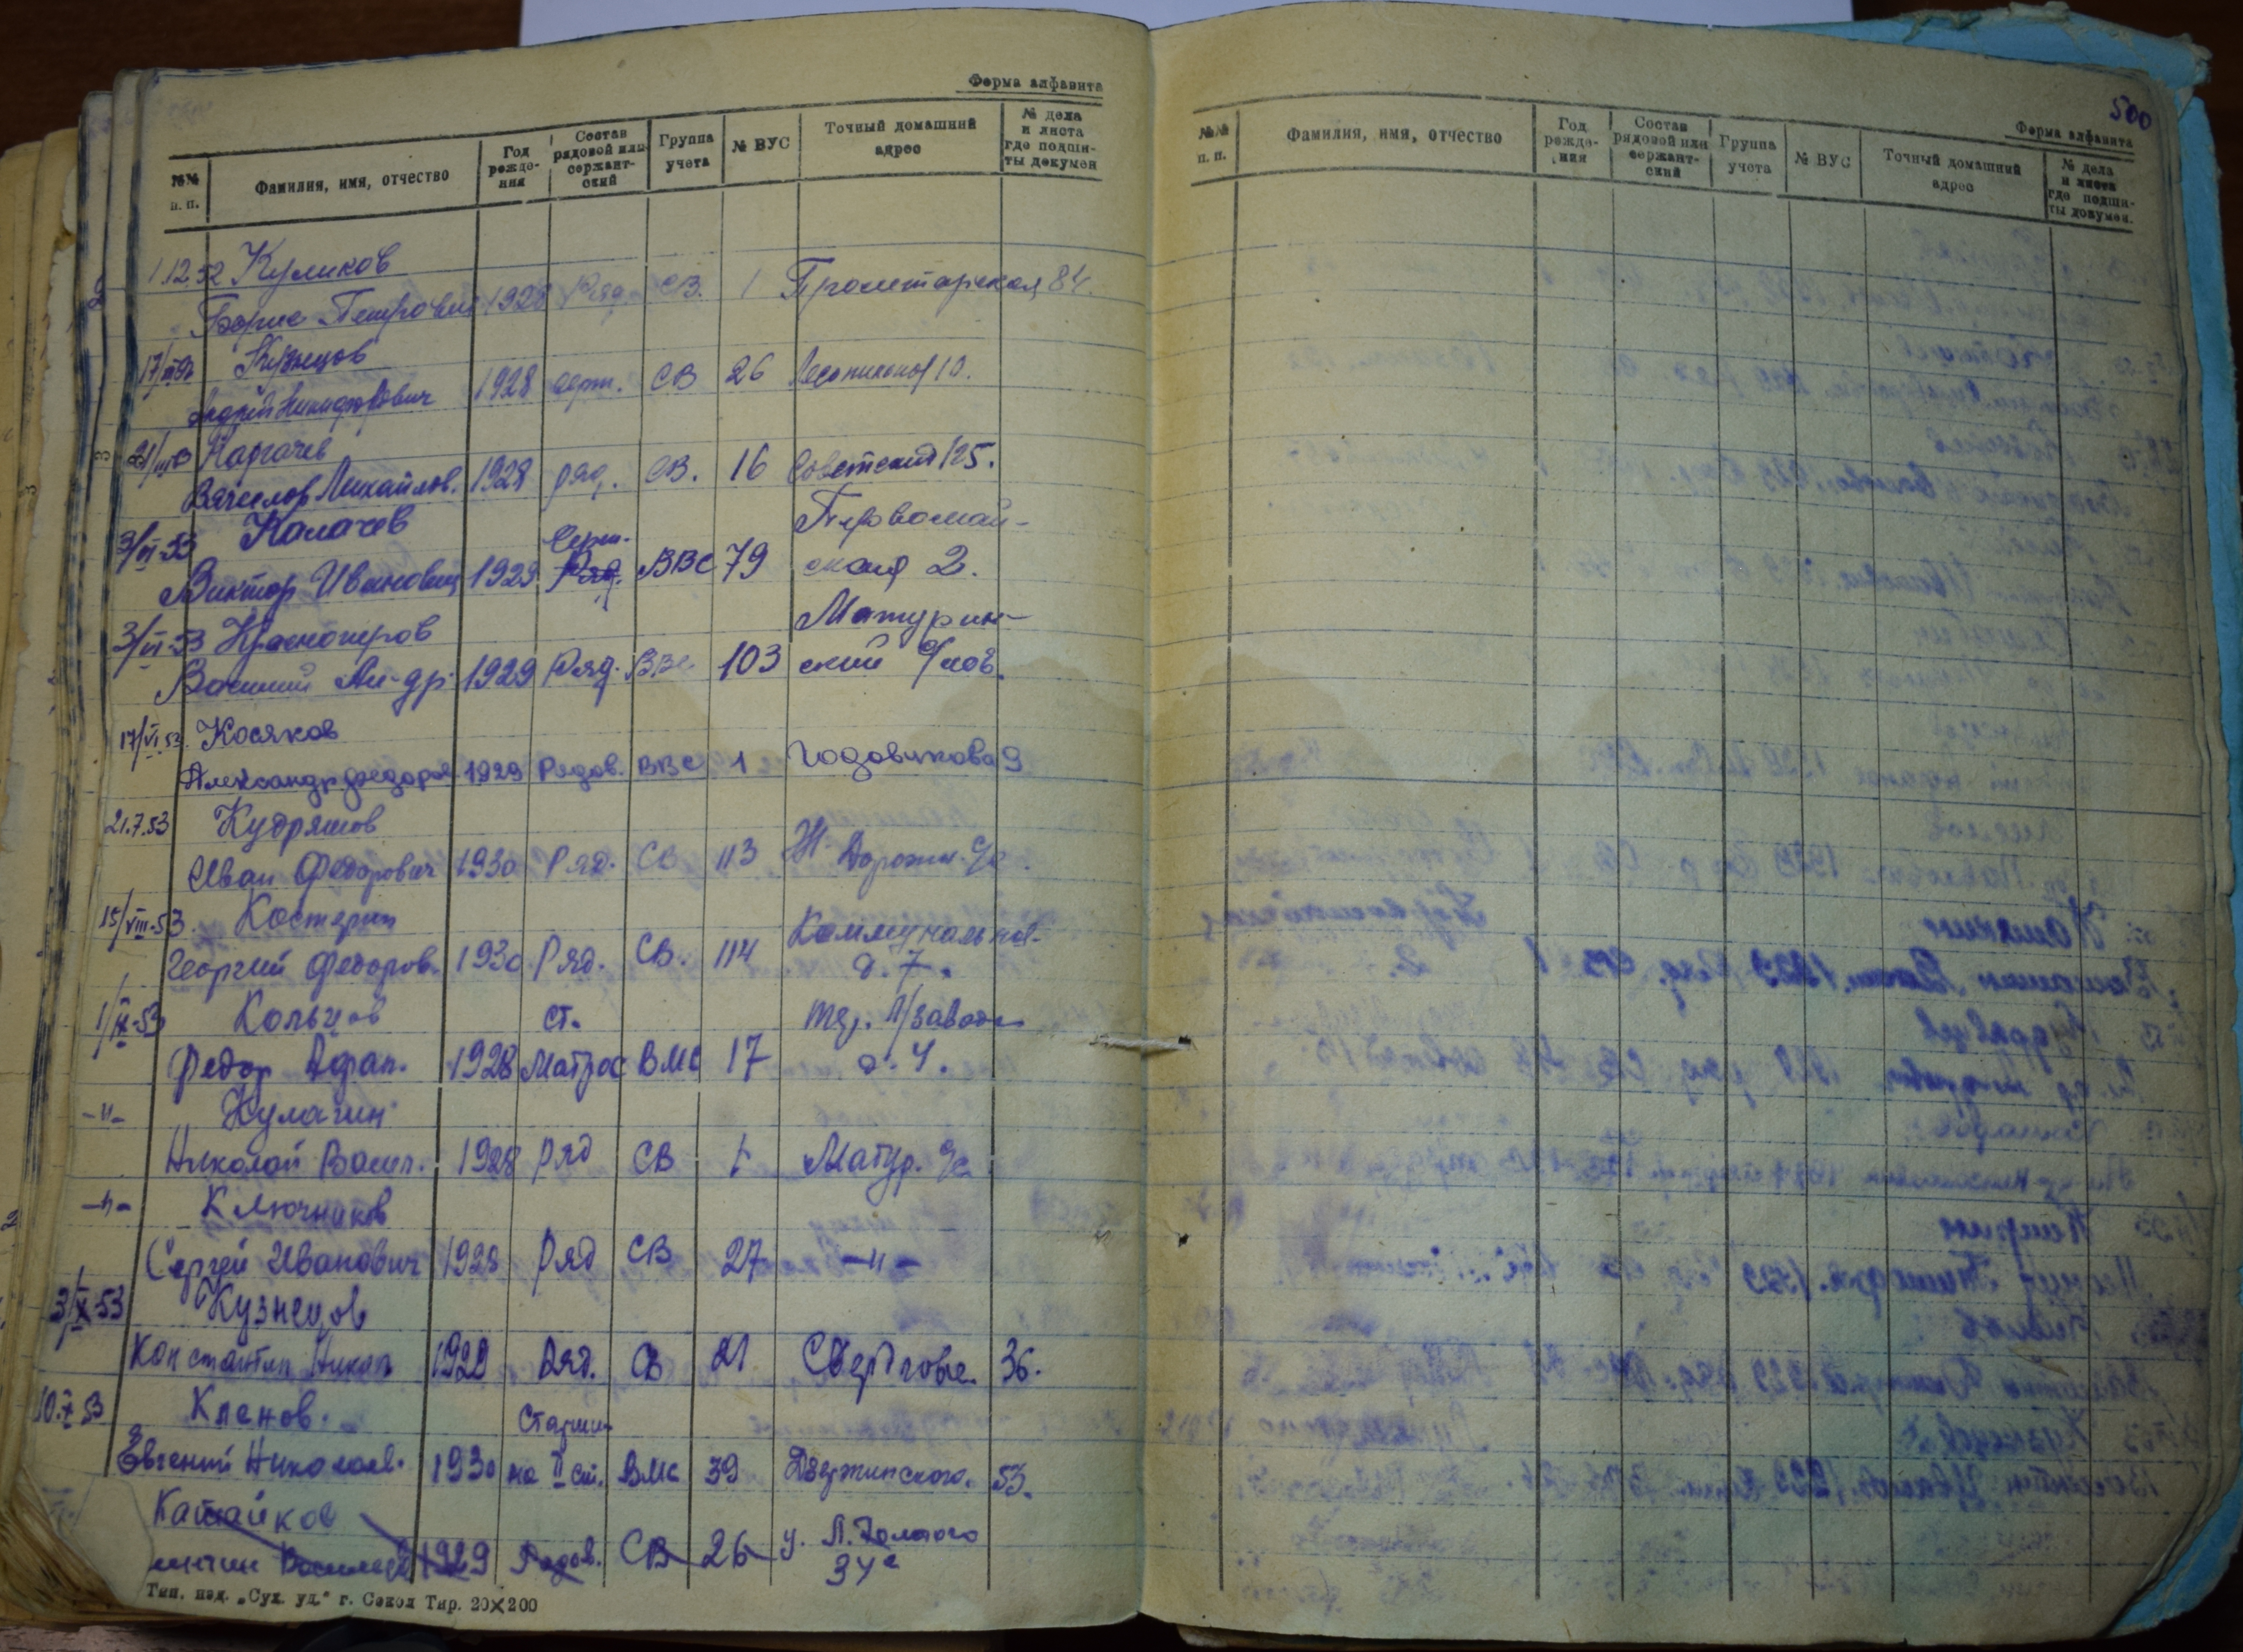 Форма алфавита
№№ п. п. Фамилия, имя, отчество Год рожде- ния Состав рядовой или сержант- ский Группа учета № ВУС Точный домашний адрес № дела и листа где подши- ты докумен
1.12.52 Куликов
Борис Петрович 1928 Ряд. СВ. 1 Пролетарская 84.
Кузнецов
Андрей Никифорович 1928 серж. СВ 26 10.
Каргачев
Вячеслав Михайлов. 1928 ряд. СВ. 16 Советский 125.
3/VI-53 Калачев Первомай-
Серж.
Виктор Иванович 1929 Ряд. ВВС 79 ская 2.
3/VI-53 Красноперов Матурин-
Василий Ал-др. 1929 Ряд. ВВС 103 ский с/сов.
17/VI.53. Косяков
Александр Федоров. 1929 Рядов. ВВС 1 Годовикова 9
21.7.53 Кудряшов
Иван Федорович 1930 Ряд. СВ 113 Ж. Дорожн. с/с.
15/VIII-53. Костерин Коммунальная-
Георгий Федоров. 1930 Ряд. СВ. 114 д. 7.
1/IX-53 Кольцов ст. тер. Л/завода
Федор Афан. 1928 Матрос ВМС 17 д. 4.
-"- Кулагин
Николай Васил. 1928 Ряд СВ 1 Матур. с/с
-"- Ключников
Сергей Иванович 1928 Ряд СВ 27 -"-
3/X-53 Кузнецов
Константин Никол 1929 Ряд. СВ 21 36.
10.X 53 Кленов. Старши-
Евгений Николаев. 1930 на II ст. ВМС 39 Дзержинского. 53.
Катайков
Василье 1929 Рядов. СВ 26 у. Л. Толстого
34а
Тип. изд. „Сух. уд." г. Сокол Тир. 20×200
500
Форма алфавита
№№ п. п. Фамилия, имя, отчество Год рожде- ния Состав рядовой или сержант- ский Группа учета № ВУС Точный домашний адрес № дела и листа где подши- ты докумен.